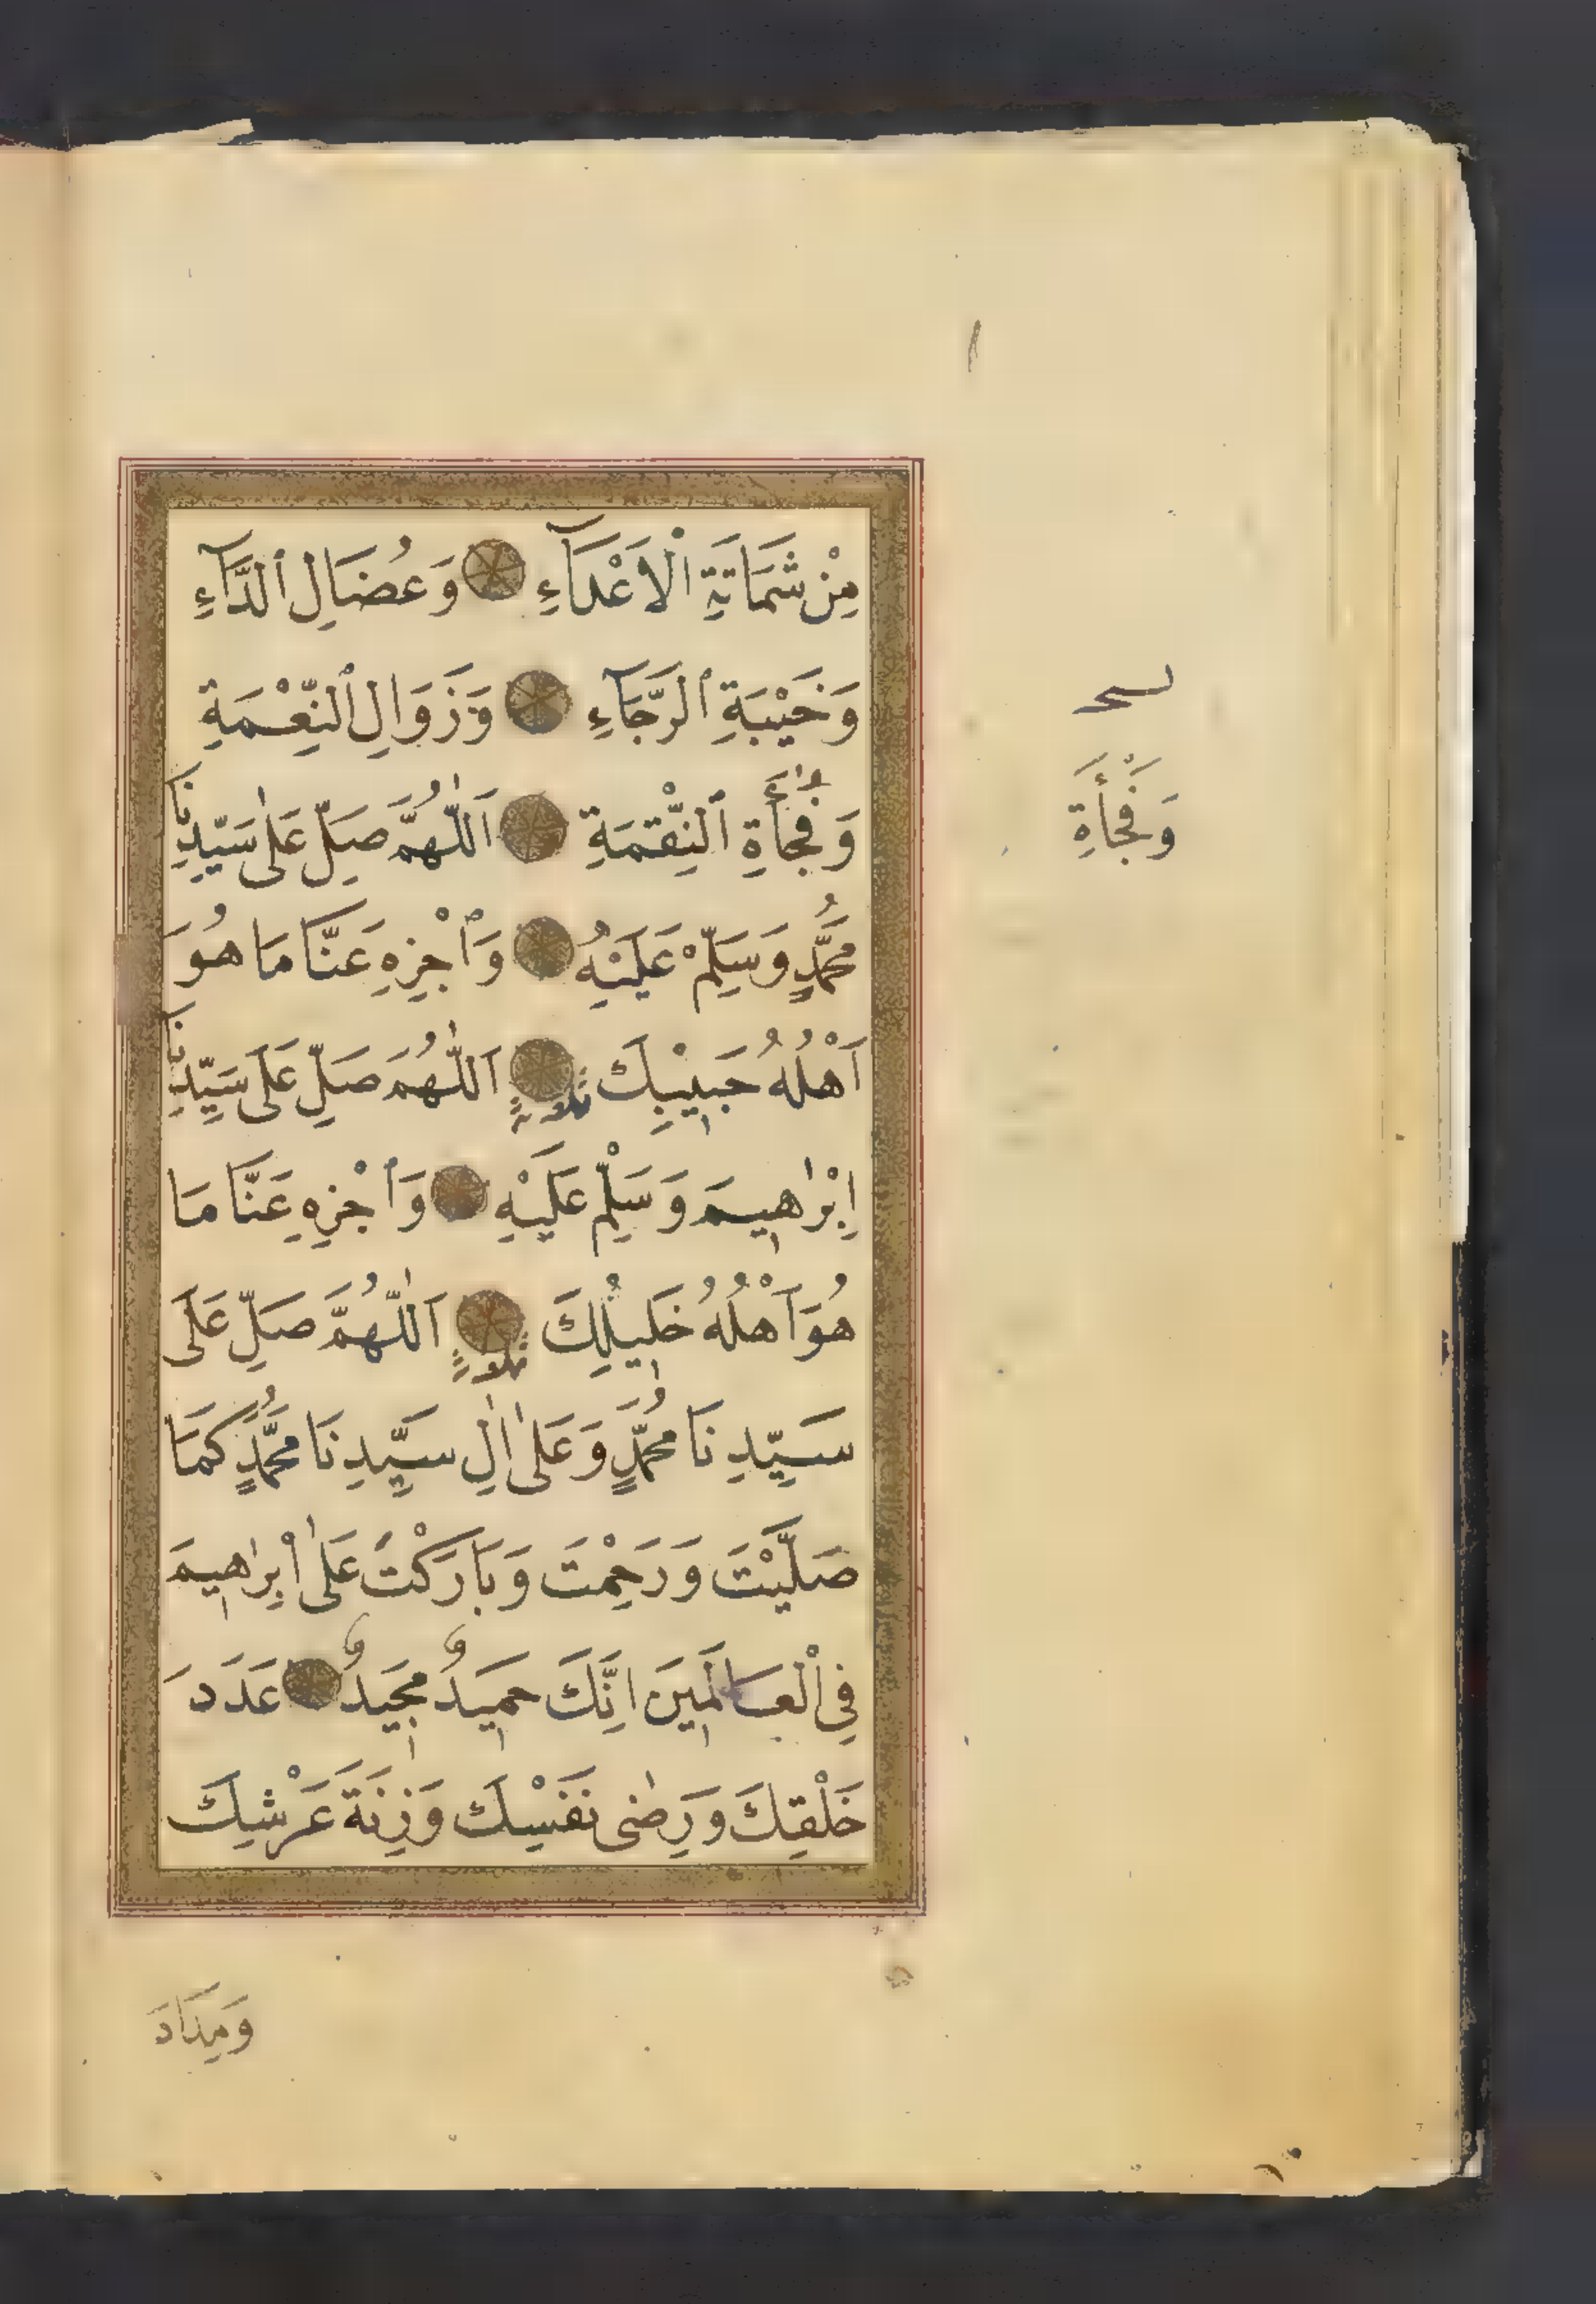 مِنْ شَمَاتَةِ الْاَعْدَآءِ وَعُضَالِ الدَّآءِ
وَخَيْبَةِ الرَّجَآءِ وَزَوَالِ النِّعْمَةِ
وَفُجَاۤءَةِ النِّقْمَةِ اَللّٰهُمَّ صَلِّ عَلٰى سَيِّدِنَا
مُحَمَّدٍ وَسَلِّمْ عَلَيْهِ وَاَجْزِهِ عَنَّا مَا هُوَ
اَهْلُهُ حَبِيْبِكَ ثلاثة اَللّٰهُمَّ صَلِّ عَلَى سَيِّدِنَا
اِبْرٰاهِيمَ وَسَلِّمْ عَلَيْهِ وَاَجْزِهِ عَنَّا مَا
هُوَ اَهْلُهُ خَلِيلِكَ ثلاثة اَللّٰهُمَّ صَلِّ عَلَى
سَيِّدِنَا مُحَمَّدٍ وَعَلٰى اٰلِ سَيِّدِنَا مُحَمَّدٍ كَمَا
صَلَّيْتَ وَرَحِمْتَ وَبَارَكْتَ عَلٰى اِبْرٰهِيمَ
فِي الْعَالَمِينَ اِنَّكَ حَمِيدٌ مَجِيدٌ عَدَدَ
خَلْقِكَ وَرِضٰى نَفْسِكَ وَزِنَةَ عَرْشِكَ
وَمِدَادَ
وَفَجْأَةِ